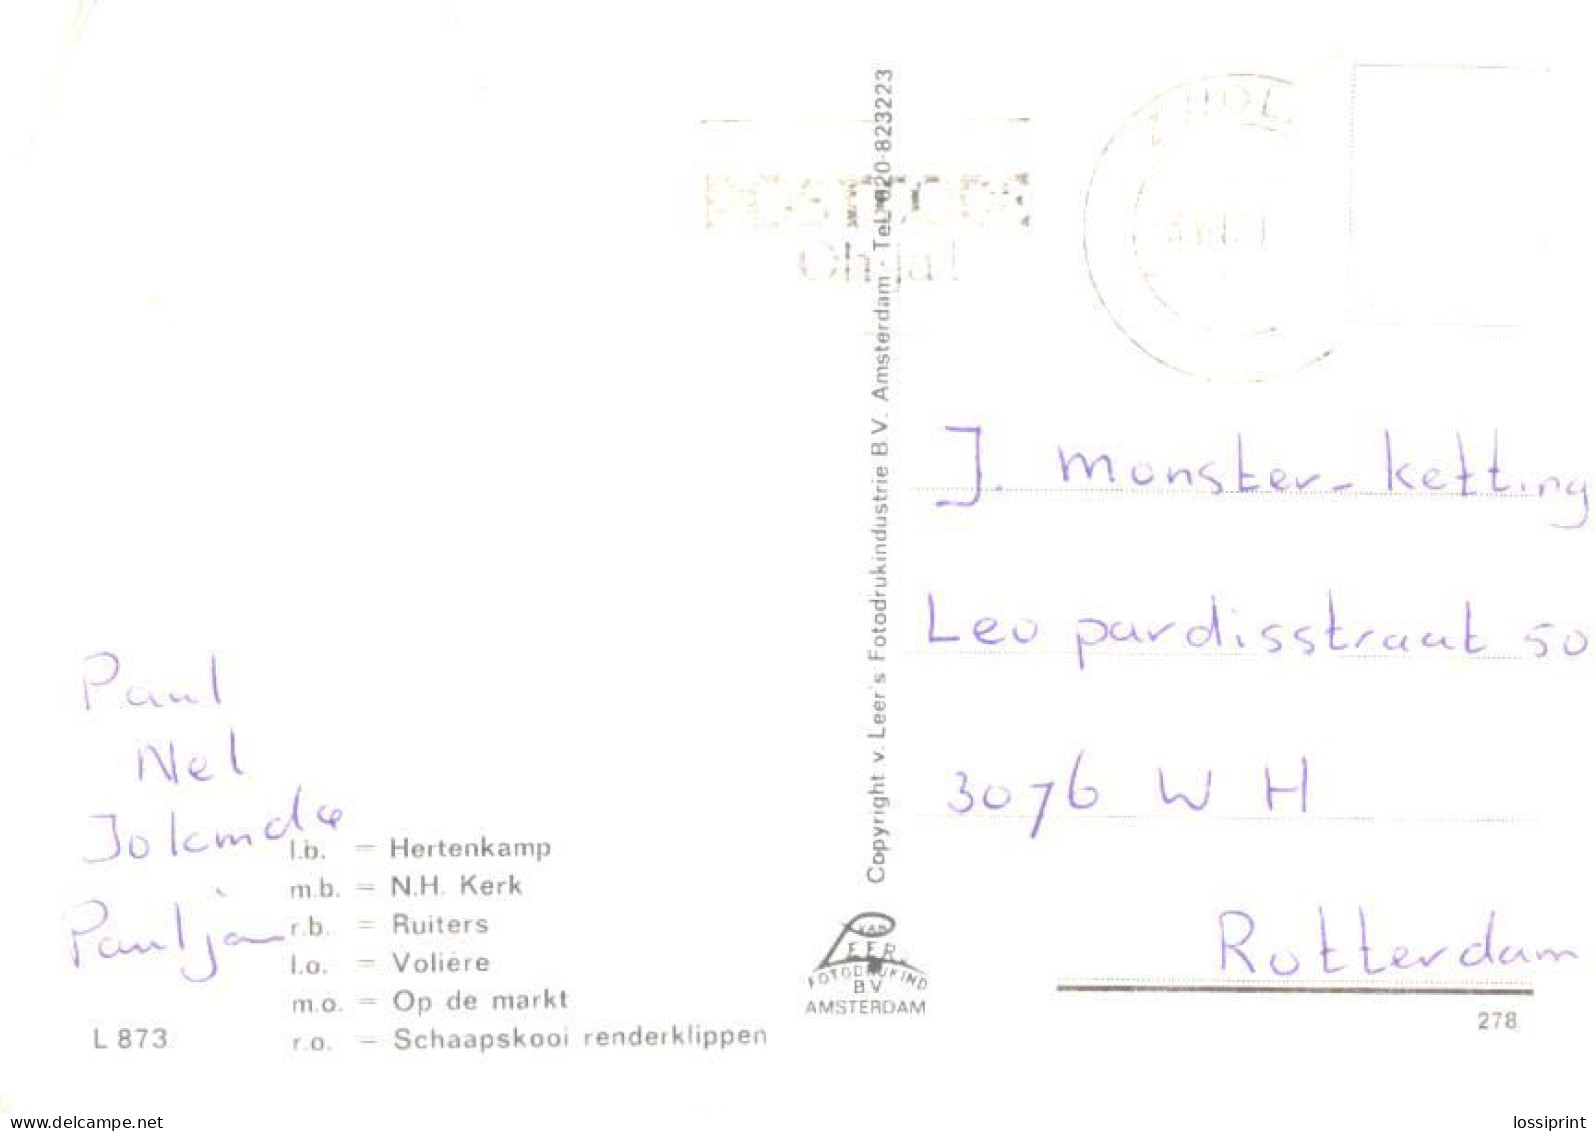 Paul
Nel
Jolanda
Pauljan
l.b. = Hertenkamp
m.b. = N.H. Kerk
r.b. = Ruiters
l.o. = Volière
m.o. = Op de markt
r.o. = Schaapskooi renderklippen
L 873
Copyright v. Leer's Fotodrukindustrie B.V. Amsterdam - Tel. 020-823223
VAN
LEER
FOTODRUKIND
B.V.
AMSTERDAM
J. Monster-Ketting
Leo pardisstraat 50
3076 WH
Rotterdam
278
www.delcampe.net
lossiprint